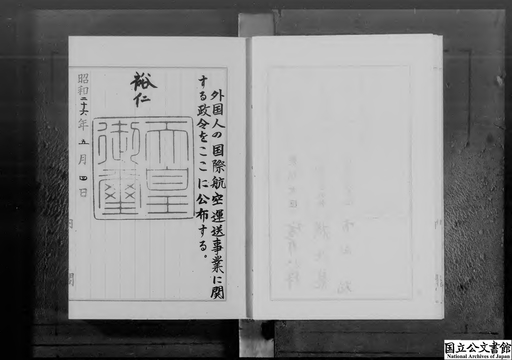 外国人の国際航空運送事業に関
する政令をここに公布する。
裕仁
天皇
御璽
昭和二十六年五月四日
内閣
国立公文書館
National Archives of Japan